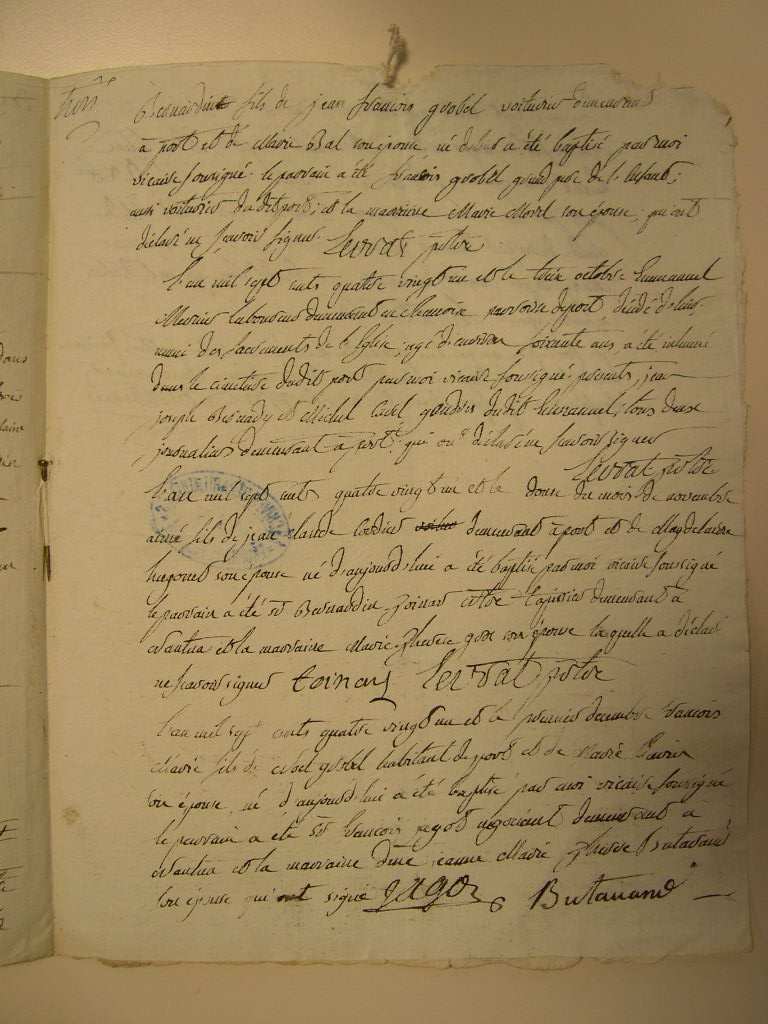 Bernardin fils de jean francois grobel voiturier demeurant
à port et de Marie Bal son épouse né d'hier a été baptisé par moi
vicaire sousigné. le parrain a été francois grobel grand pere de l'enfant;
aussi voiturier du dit port; et la marraine Marie Morel son épouse, qui ont
déclaré ne savoir signer. Levrat ptre
L'an mil sept cents quatre vingt un et le treize octobre Emmanuel
Mercier laboureur demeurant en paroisse de port, décédé d'hier
muni des sacrements de l'Eglise, agé d'environ soixante ans, a été inhumé
dans le cimetiere du dit port par moi vicaire sousigné. presents, jean
joseph et Michel gendres du dit Emmanuel, tous deux
journaliers demeurant à port qui ont déclaré ne savoir signer
Levrat ptre
L'an mil sept cents quatre vingt un et le douze du mois de novembre
aimé fils de jean claude demeurant à port et de Magdelaine
son épouse né d'aujourd'hui a été baptisé par moi vicaire sousigné
le parrain a été sr Bernardin Toinard demeurant à
Nantua et la marraine Marie Therese son épouse laquelle a déclaré
ne savoir signer Toinard Levrat ptre
L'an mil sept cents quatre vingt un et le premier decembre francois
Marie fils de grobel habitant de port et de Marie
son épouse, né d'aujourd'hui a été baptisé par moi vicaire sousigné
le parrain a été sr francois jagot négociant demeurant à
Nantua et la marraine dme jeanne Marie Therese Butavand
son épouse qui ont signé Jagot Butavand